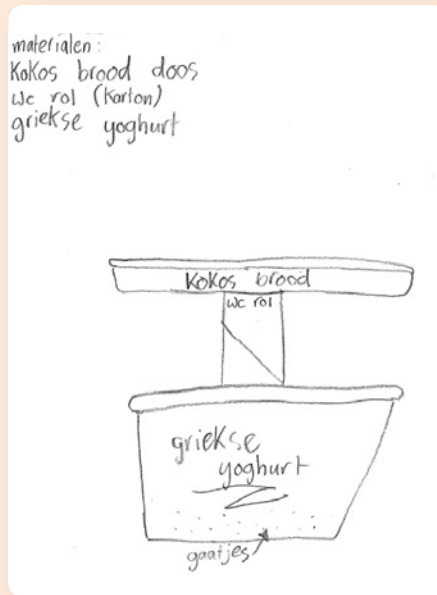 materialen:
Kokos brood doos
wc rol (Karton)
griekse yoghurt
Kokos brood
wc rol
griekse
yoghurt
gaatjes